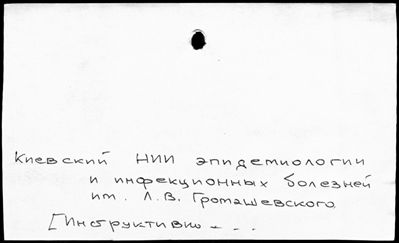 Киевский НИИ эпидемиологии
и инфекционных болезней
им. Л.В. Громашевского
[Инструктивно- . .